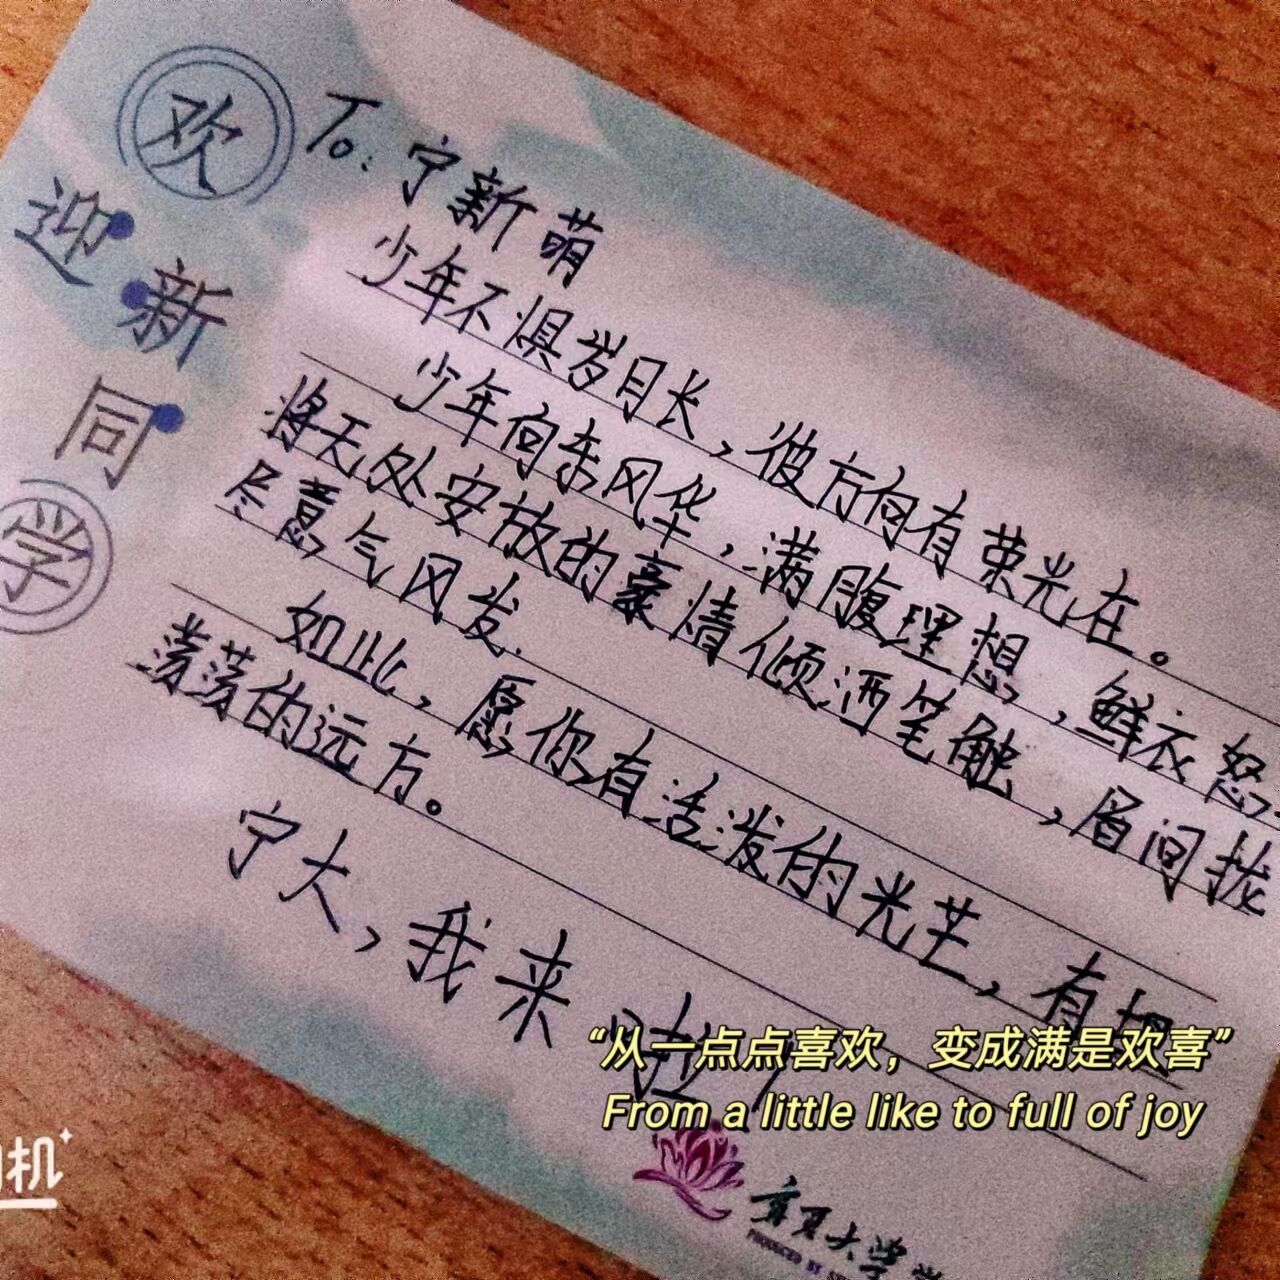 欢迎新同学
To: 宁新萌
少年不惧岁月长，彼方向有荣光在。
少年向来风华，满腹理想，鲜衣怒
将无处安放的豪情倾洒笔触，眉间拢
尽意气风发.
如此，愿你有活泼的光芒，有坦
荡荡的远方。
宁大，我来啦！
“从一点点喜欢，变成满是欢喜”
From a little like to full of joy
机
宁夏大学
PRODUCED BY